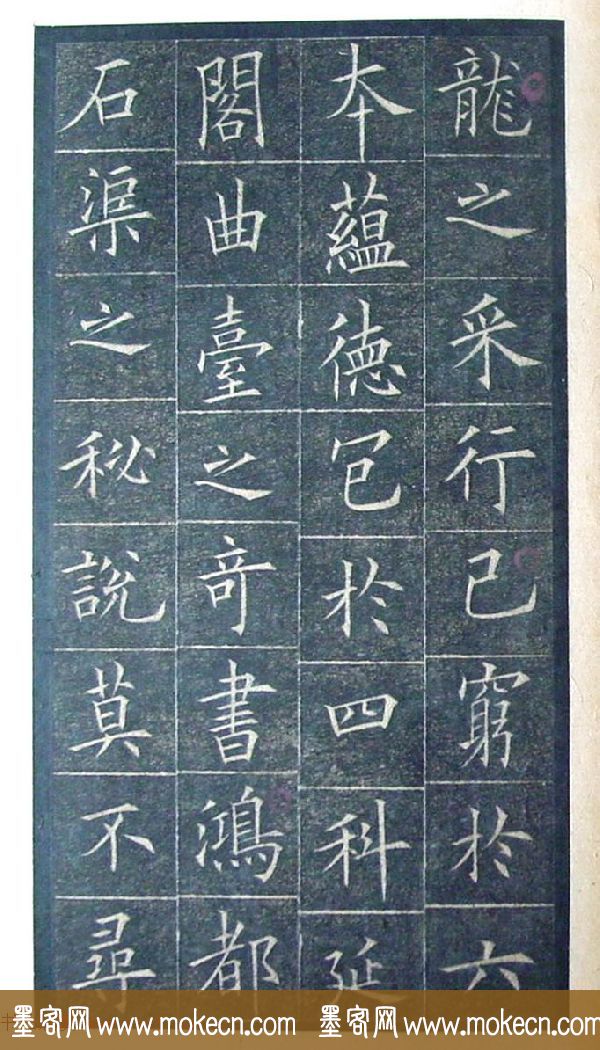 龍之采行已窮於六
夲蘊德包於四科延
閣曲臺之竒書鴻都
石渠之秘說莫不尋
墨客网 www.mokecn.com 墨客网 www.mokecn.com